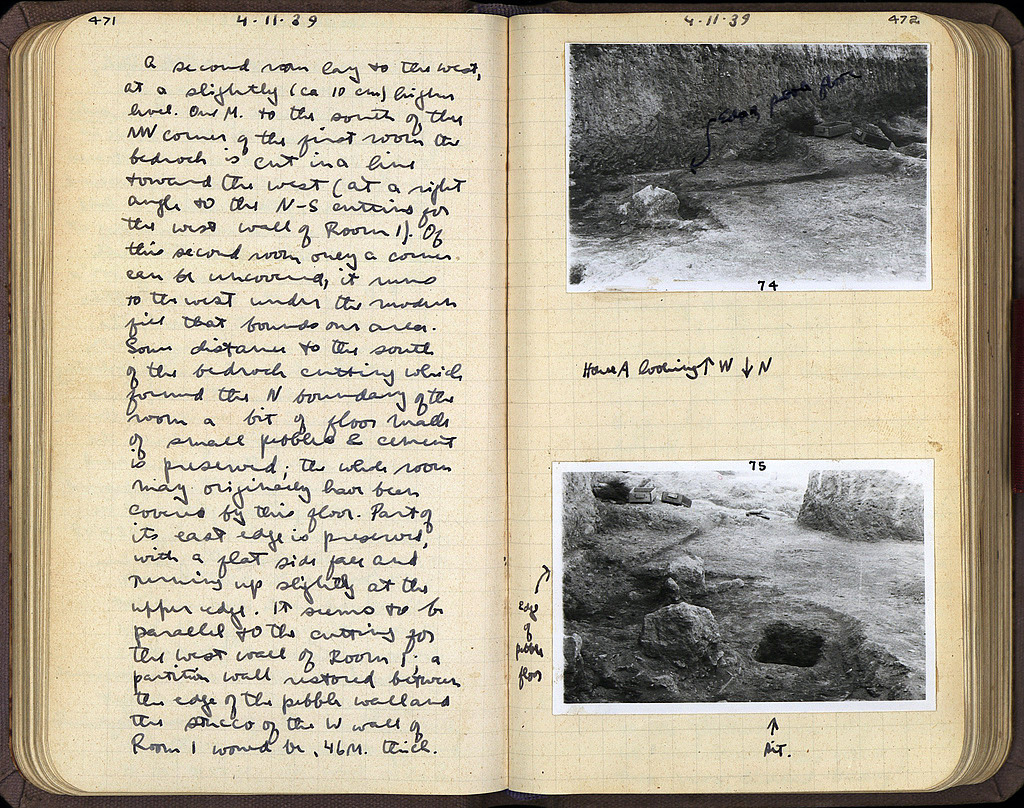 471
4·11·39
A second room lay to the west,
at a slightly (ca 10 cm) higher
level. One M. to the south of the
NW corner of the first room the
bedrock is cut in a line
toward the west (at a right
angle to the N-S cutting for
the west wall of Room 1). Of
this second room only a corner
can be uncovered, it runs
to the west under the modern
fill that bounds our area.
Some distance to the south
of the bedrock cutting which
formed the N boundary of the
room a bit of floor made
of small pebbles & cement
is preserved; the whole room
may originally have been
covered by this floor. Part of
its east edge is preserved,
with a flat side face and
running up slightly at the
upper edge. It seems to be
parallel to the cutting for
the west wall of Room 1; a
partition wall restored between
the edge of the pebble wall and
the stucco of the W wall of
Room 1 would be .46M. thick.
4·11·39
472
Edge pebble floor
74
House A looking ↑ W ↓ N
75
Edge
of
pebble
floor
Pit.